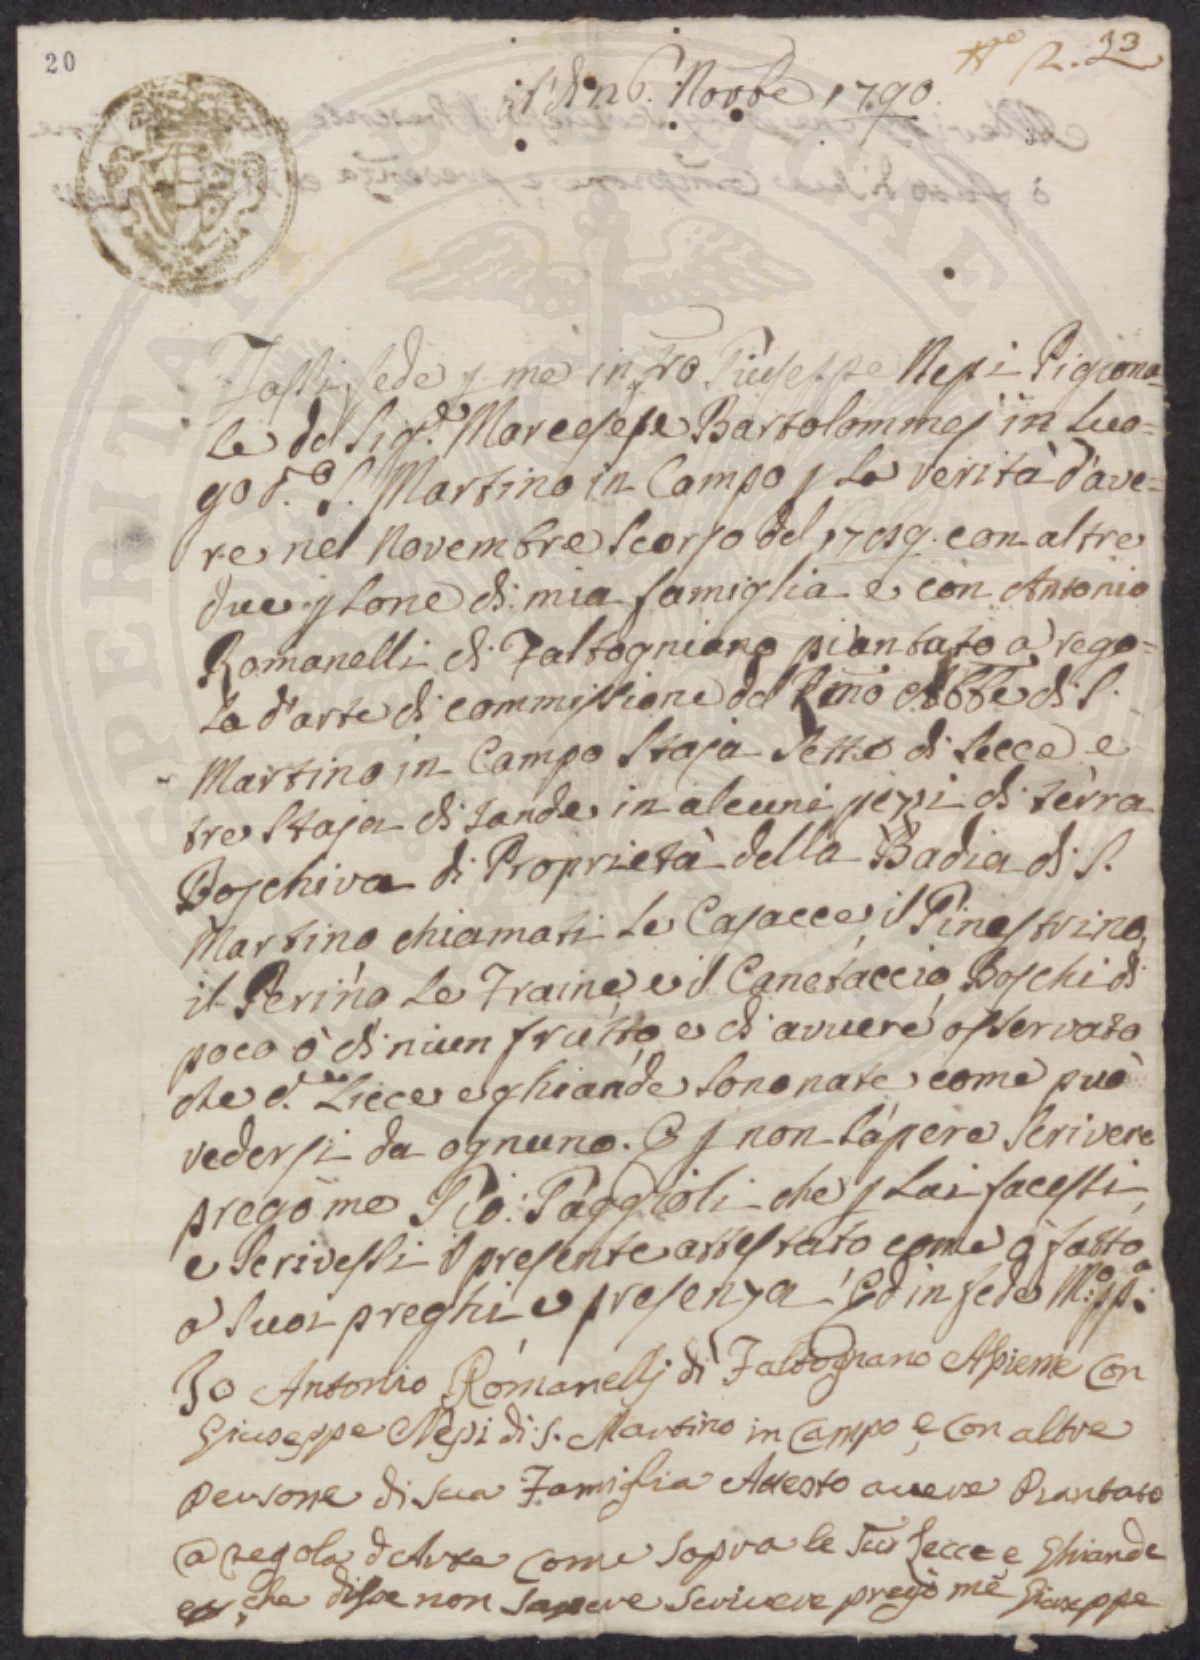 20
N.º 2. 33
A' dì 26. Novbe 1790.
Fassi fede p me infrto Giuseppe Nesi Pigiona=
le del Sigr. Marchese Bartolommej in Luo=
go d.º S. Martino in Campo p la verità d'ave=
re nel Novembre scorso del 1789. con altre
due psone di mia famiglia e con Antonio
Romanelli di Faltogniano piantato a rego=
la d'arte di commissione del Rmo Abbe di S.
Martino in Campo Staja Sette di Lecce e
tre Staja di Jande in alcuni pezzi di terra
Boschiva di Proprietà della Badia di S.
Martino chiamati Le Casacce, il Pinestrino,
il Perino Le Fraine e il Canetaccio, Boschi di
poco ò di niun frutto e di avuere osservato
che d.e Liece e ghiande sono nate come può
vedersi da ognuno. E p non sapere scrivere
pregò me Gio: Paggioli che p Lui facessi
e scrivessi il presente attestato come ò fatto
a suoi preghi e presenza Ed in fede M.º pp.ª
Io Antonio Romanellj di Faltognano Asieme con
Giuseppe Nesi di S. Martino in Campo e con altre
persone di sua Famiglia Attesto avere Piantato
a regola d Arte come sopra le sud Lecce e Ghiande
e che disse non sapere scrivere pregò me Giuseppe